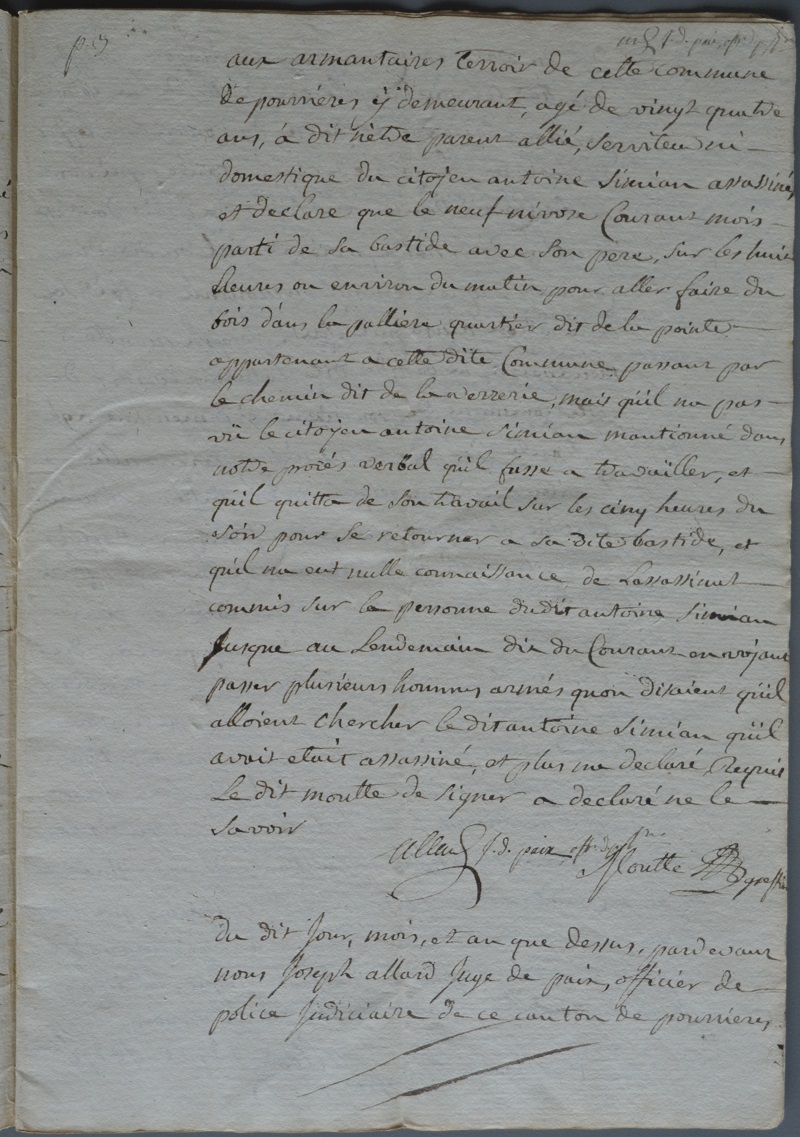 p. 3
j. d. paix, off. d. p.
aux armantaires terroir de cette commune
de pourriéres ÿ demeurant, agé de vingt quatre
ans, á dit n'etre parent allié, serviteur ni —
domestique du citoyen antoine Simian assassiné,
et declare que le neuf nivose Courant mois —
parti de sa bastide avec son pere, sur les huit
heures ou environ du matin pour aller faire du
bois dans la palliere quartier dit de la pointe —
appartenant a cette dite Commune passant par
le chemin dit de la verrerie, mais quil na pas —
vû le citoyen antoine Simian mantionné dans
notre procés verbal qu'il fusse a travaïller, et —
quil quitta de son travail sur les cinq heures du
soir pour se retourner a sa dite bastide, et
quil na eut nulle connaissance de Lassassinat —
commis sur la personne dudit antoine Simian
Jusque au Lendemain dix du Courant en voyant
passer plusieurs hommes armés quon disaient qu'il
alloient chercher le dit antoine Simian qu'il
avait etait assassiné, et plus na declaré, Requis
Le dit moutte de signer a declaré ne le —
savoir
allard j. d. paix off. de p. Moutte greffier
Du dit Jour, mois, et an que dessus, pardevant
nous Joseph allard Juge de paix, officier de —
police Judiciaire de ce canton de pourrieres,